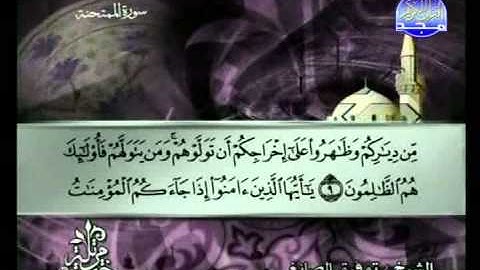 سورة الممتحنة
المجد
مِّن دِيَـٰرِكُمْ وَظَـٰهَرُوا۟ عَلَىٰٓ إِخْرَاجِكُمْ أَن تَوَلَّوْهُمْ ۚ وَمَن يَتَوَلَّهُمْ فَأُو۟لَـٰٓئِكَ
هُمُ ٱلظَّـٰلِمُونَ ٩ يَـٰٓأَيُّهَا ٱلَّذِينَ ءَامَنُوٓا۟ إِذَا جَآءَكُمُ ٱلْمُؤْمِنَـٰتُ
الشيخ توفيق الصائغ